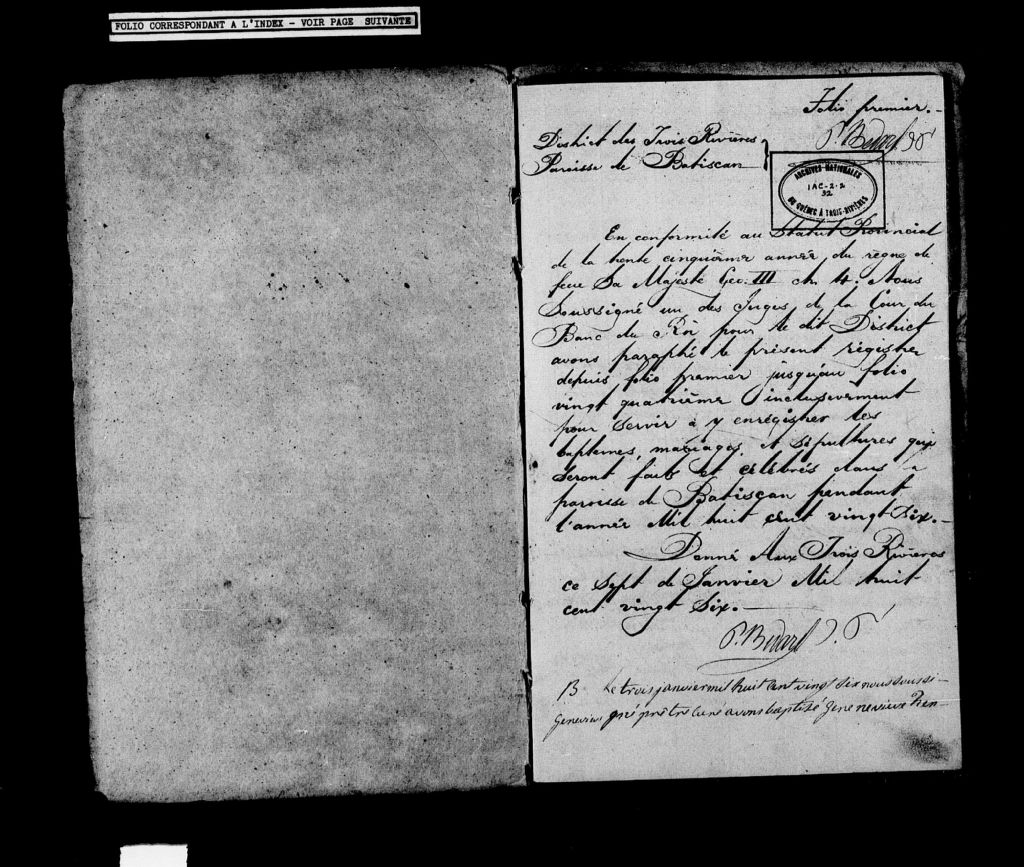 FOLIO CORRESPONDANT A L'INDEX - VOIR PAGE SUIVANTE
Folio premier.
P. Bedard
District des Trois Rivières
Paroisse de Batiscan
ARCHIVES NATIONALES
1AC-2-2
32
DU QUÉBEC À TROIS-RIVIÈRES
En conformité au Statut Provincial
de la trente cinquième année du règne de
feue Sa Majesté Geo. III ch. 4. Nous
Soussigné un des Juges de la Cour du
Banc du Roi pour le dit District
avons paraphé le présent régistre
depuis folio premier jusqu'au folio
vingt quatrième inclusivement
pour servir à y enrégistrer les
baptemes, mariages, et sépultures qui
seront faits et célébrés dans
paroisse de Batiscan pendant
l'année Mil huit cent vingt Six.
Donné Aux Trois Rivières
ce Sept de Janvier Mil huit
cent vingt Six.
P. Bedard
B Le trois janvier mil huit cent vingt six nous soussi-
Genevieve gné prêtre curé avons baptisé Genevieve